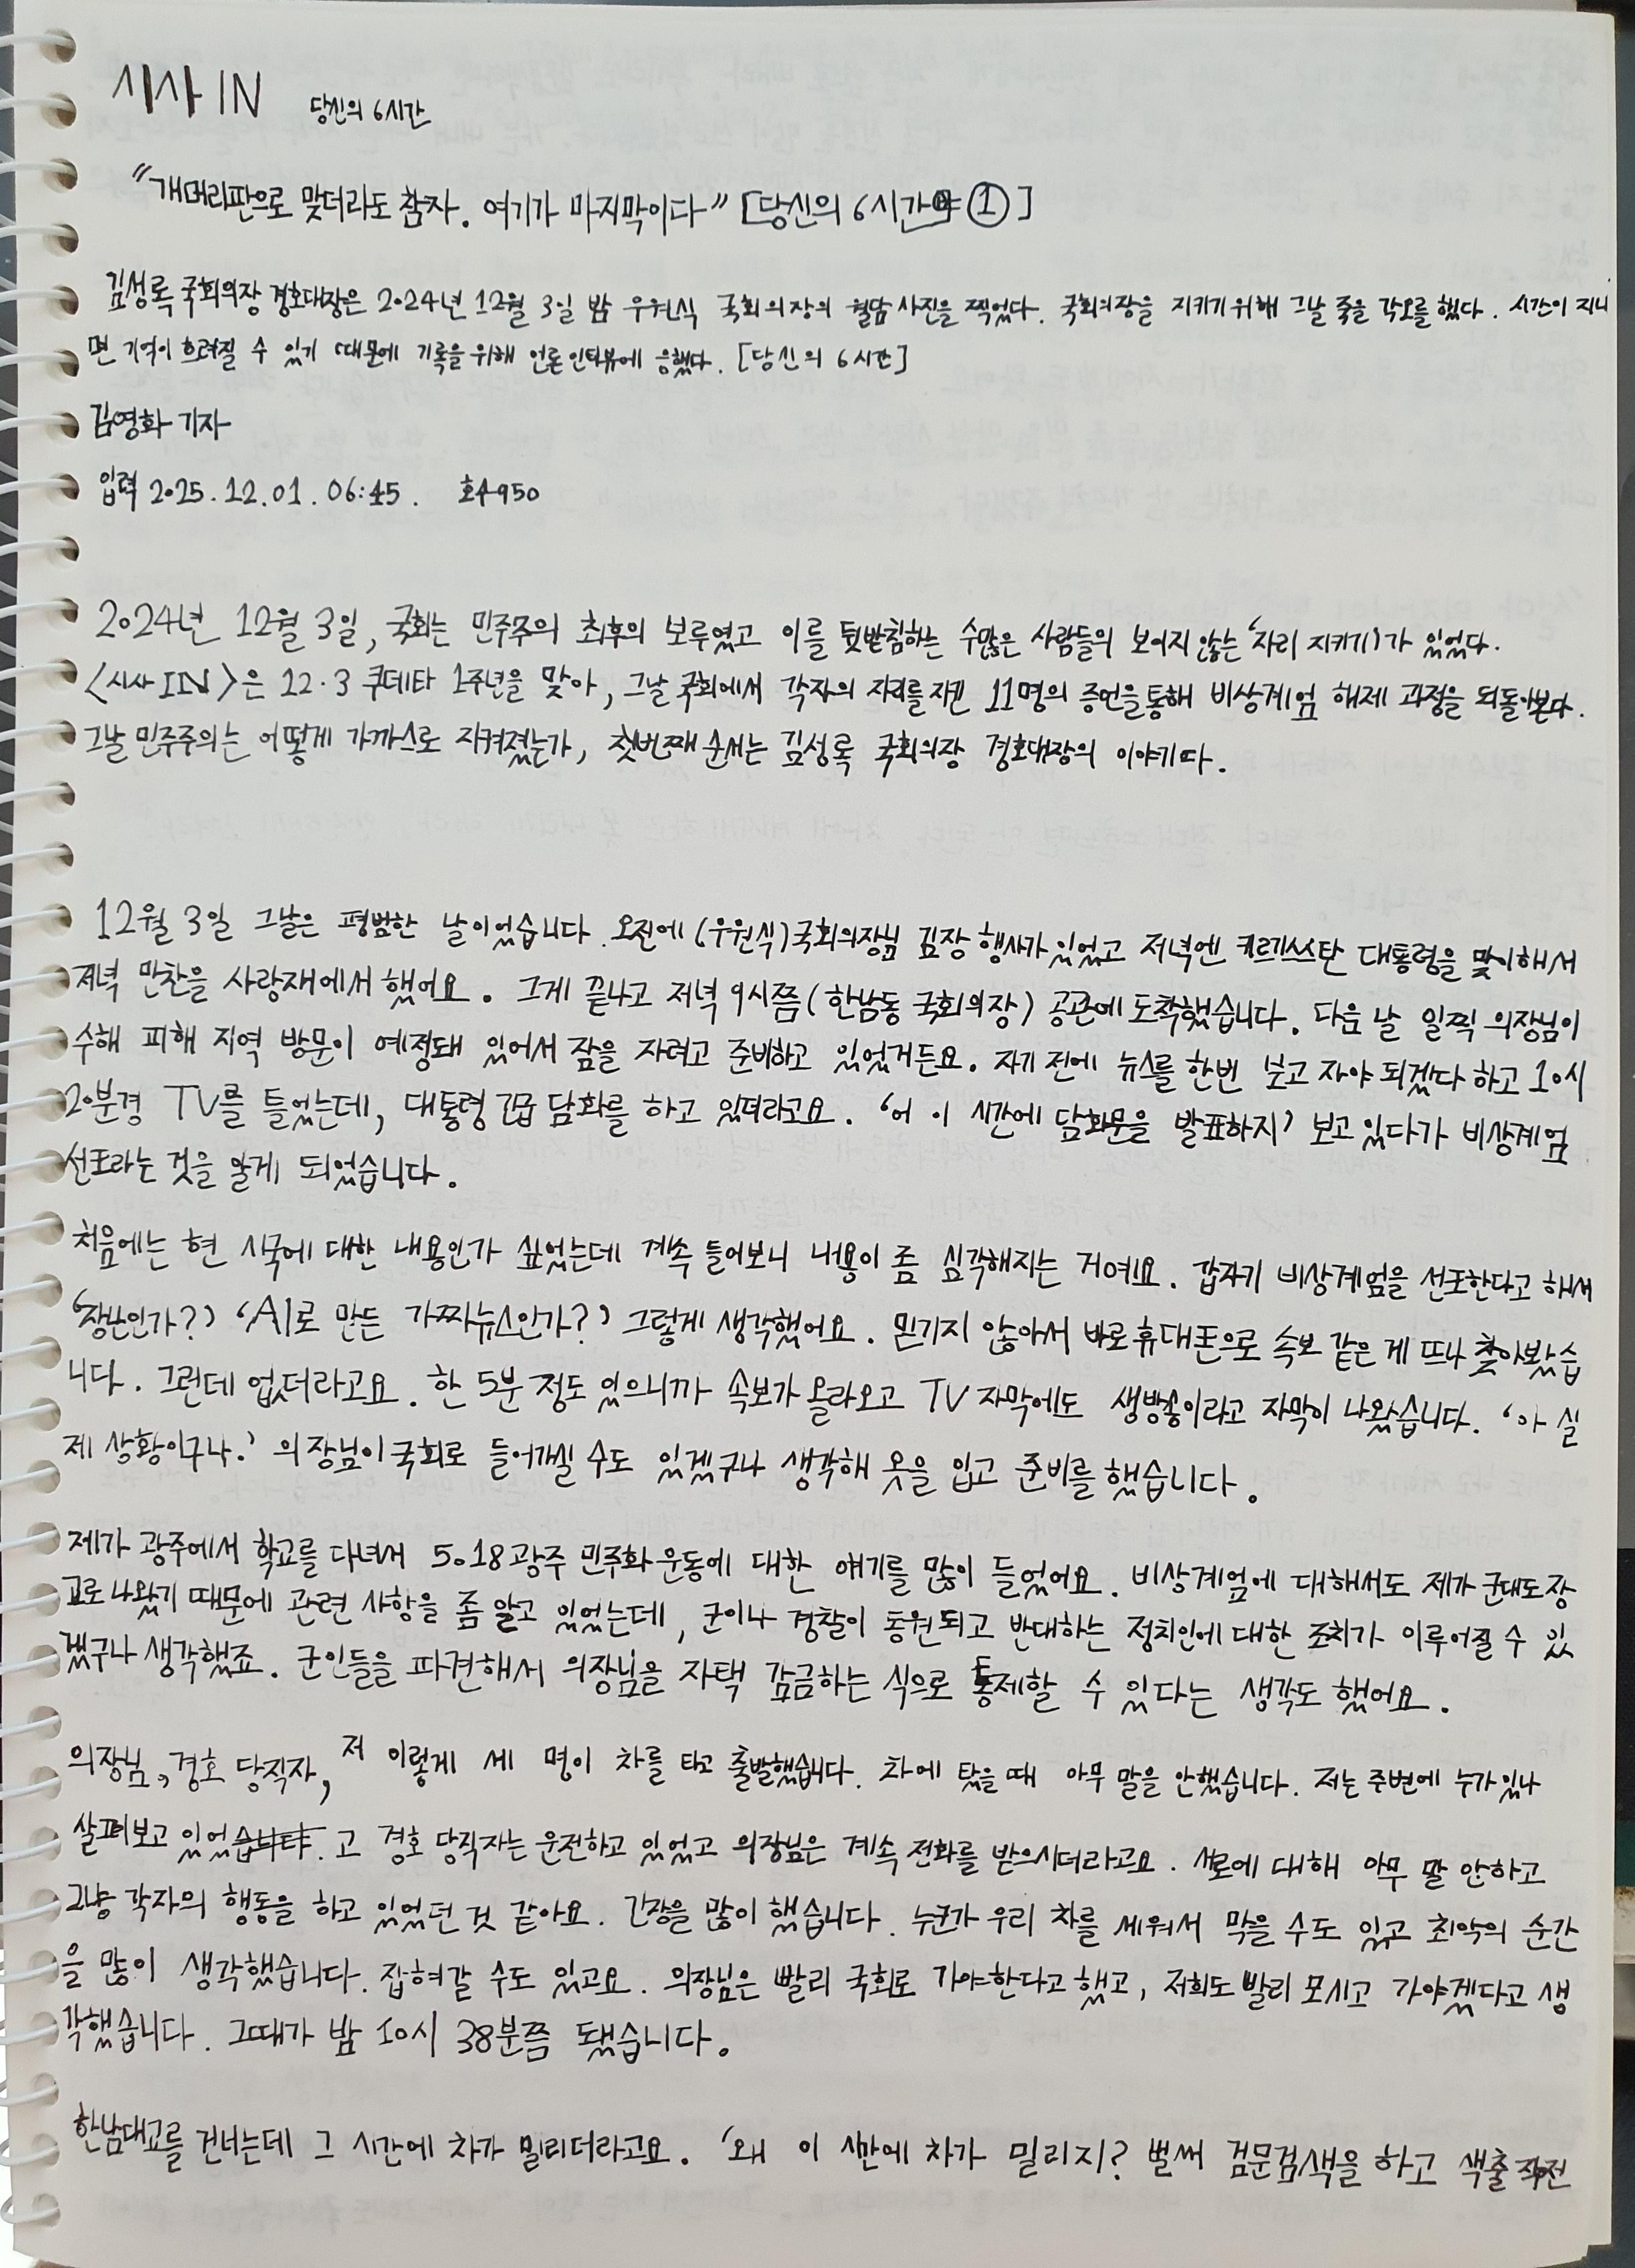 시사IN 당신의 6시간
"개머리판으로 맞더라도 참자. 여기가 마지막이다" [당신의 6시간 ①]
김성록 국회의장 경호대장은 2024년 12월 3일 밤 우원식 국회의장의 월담 사진을 찍었다. 국회의장을 지키기 위해 그날 죽을 각오를 했다. 시간이 지나
면 기억이 흐려질 수 있기 때문에 기록을 위해 언론 인터뷰에 응했다. [당신의 6시간]
김영화 기자
입력 2025.12.01. 06:45. 호수950
2024년 12월 3일, 국회는 민주주의 최후의 보루였고 이를 뒷받침하는 수많은 사람들의 보이지 않는 '자리 지키기'가 있었다.
<시사IN>은 12·3 쿠데타 1주년을 맞아, 그날 국회에서 각자의 자리를 지킨 11명의 증언을 통해 비상계엄 해제 과정을 되돌아본다.
그날 민주주의는 어떻게 가까스로 지켜졌는가, 첫번째 순서는 김성록 국회의장 경호대장의 이야기다.
12월 3일 그날은 평범한 날이었습니다. 오전에 (우원식)국회의장님 김장 행사가 있었고 저녁엔 키르기스스탄 대통령을 맞이해서
저녁 만찬을 사랑재에서 했어요. 그게 끝나고 저녁 9시쯤(한남동 국회의장) 공관에 도착했습니다. 다음 날 일찍 의장님이
수해 피해 지역 방문이 예정돼 있어서 잠을 자려고 준비하고 있었거든요. 자기 전에 뉴스를 한번 보고 자야 되겠다 하고 10시
20분경 TV를 틀었는데, 대통령 긴급 담화를 하고 있더라고요. '어 이 시간에 담화문을 발표하지' 보고 있다가 비상계엄
선포라는 것을 알게 되었습니다.
처음에는 현 시국에 대한 내용인가 싶었는데 계속 들어보니 내용이 좀 심각해지는 거예요. 갑자기 비상계엄을 선포한다고 해서
'장난인가?' 'AI로 만든 가짜뉴스인가?' 그렇게 생각했어요. 믿기지 않아서 바로 휴대폰으로 속보 같은 게 뜨나 찾아봤습
니다. 그런데 없더라고요. 한 5분 정도 있으니까 속보가 올라오고 TV 자막에도 생방송이라고 자막이 나왔습니다. '아 실
제 상황이구나.' 의장님이 국회로 들어가실 수도 있겠구나 생각해 옷을 입고 준비를 했습니다.
제가 광주에서 학교를 다녀서 5.18광주 민주화운동에 대한 얘기를 많이 들었어요. 비상계엄에 대해서도 제가 군대도 장
교로 나왔기 때문에 관련 사항을 좀 알고 있었는데, 군이나 경찰이 동원되고 반대하는 정치인에 대한 조치가 이루어질 수 있
겠구나 생각했죠. 군인들을 파견해서 의장님을 자택 감금하는 식으로 통제할 수 있다는 생각도 했어요.
의장님, 경호 당직자, 저 이렇게 세 명이 차를 타고 출발했습니다. 차에 탔을 때 아무 말을 안했습니다. 저는 주변에 누가 있나
살펴보고 있었습니다. 고 경호 당직자는 운전하고 있었고 의장님은 계속 전화를 받으시더라고요. 서로에 대해 아무 말 안하고
그냥 각자의 행동을 하고 있었던 것 같아요. 긴장을 많이 했습니다. 누군가 우리 차를 세워서 막을 수도 있고 최악의 순간
을 많이 생각했습니다. 잡혀갈 수도 있고요. 의장님은 빨리 국회로 가야한다고 했고, 저희도 빨리 모시고 가야겠다고 생
각했습니다. 그때가 밤 10시 38분쯤 됐습니다.
한남대교를 건너는데 그 시간에 차가 밀리더라고요. '왜 이 시간에 차가 밀리지? 벌써 검문검색을 하고 색출 작전